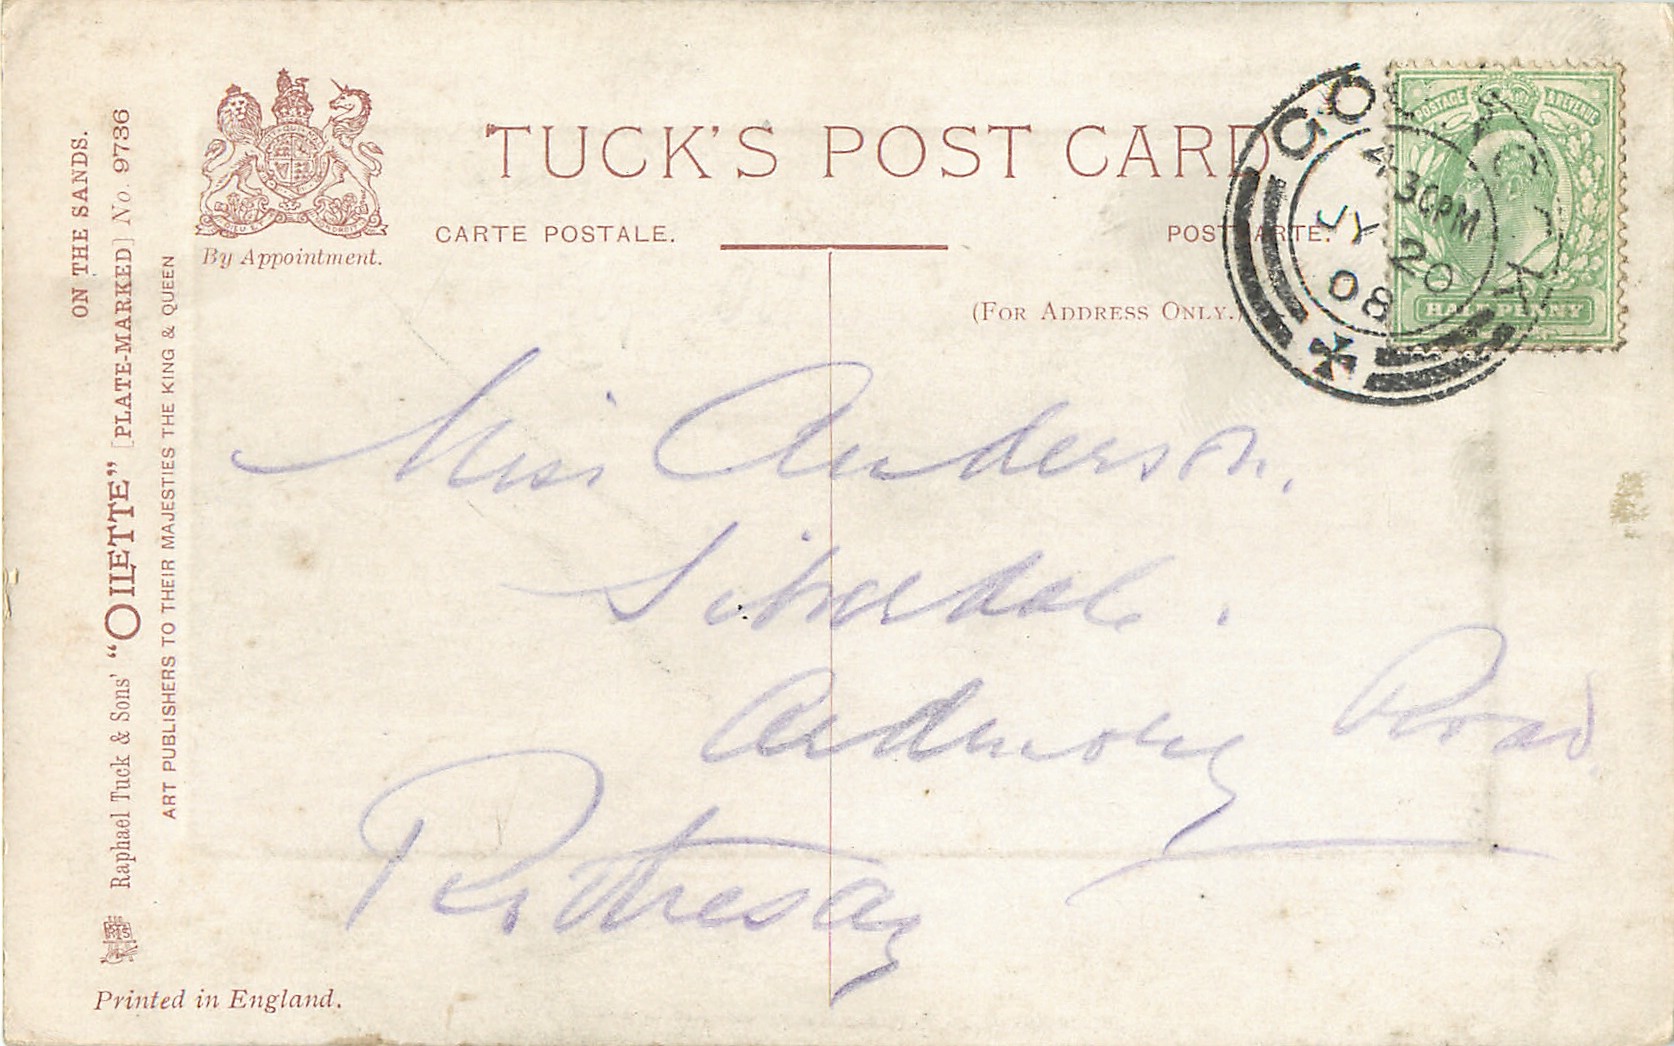 TUCK'S POST CARD
CARTE POSTALE.
(FOR ADDRESS ONLY.)
By Appointment.
ON THE SANDS.
Raphael Tuck & Sons' "OILETTE" [PLATE-MARKED] No. 9736
ART PUBLISHERS TO THEIR MAJESTIES THE KING & QUEEN
Printed in England.
POSTAGE & REVENUE
HALF PENNY
4 30PM
JY 20
08
Miss Anderson.
Ardmory Road
Rothesay